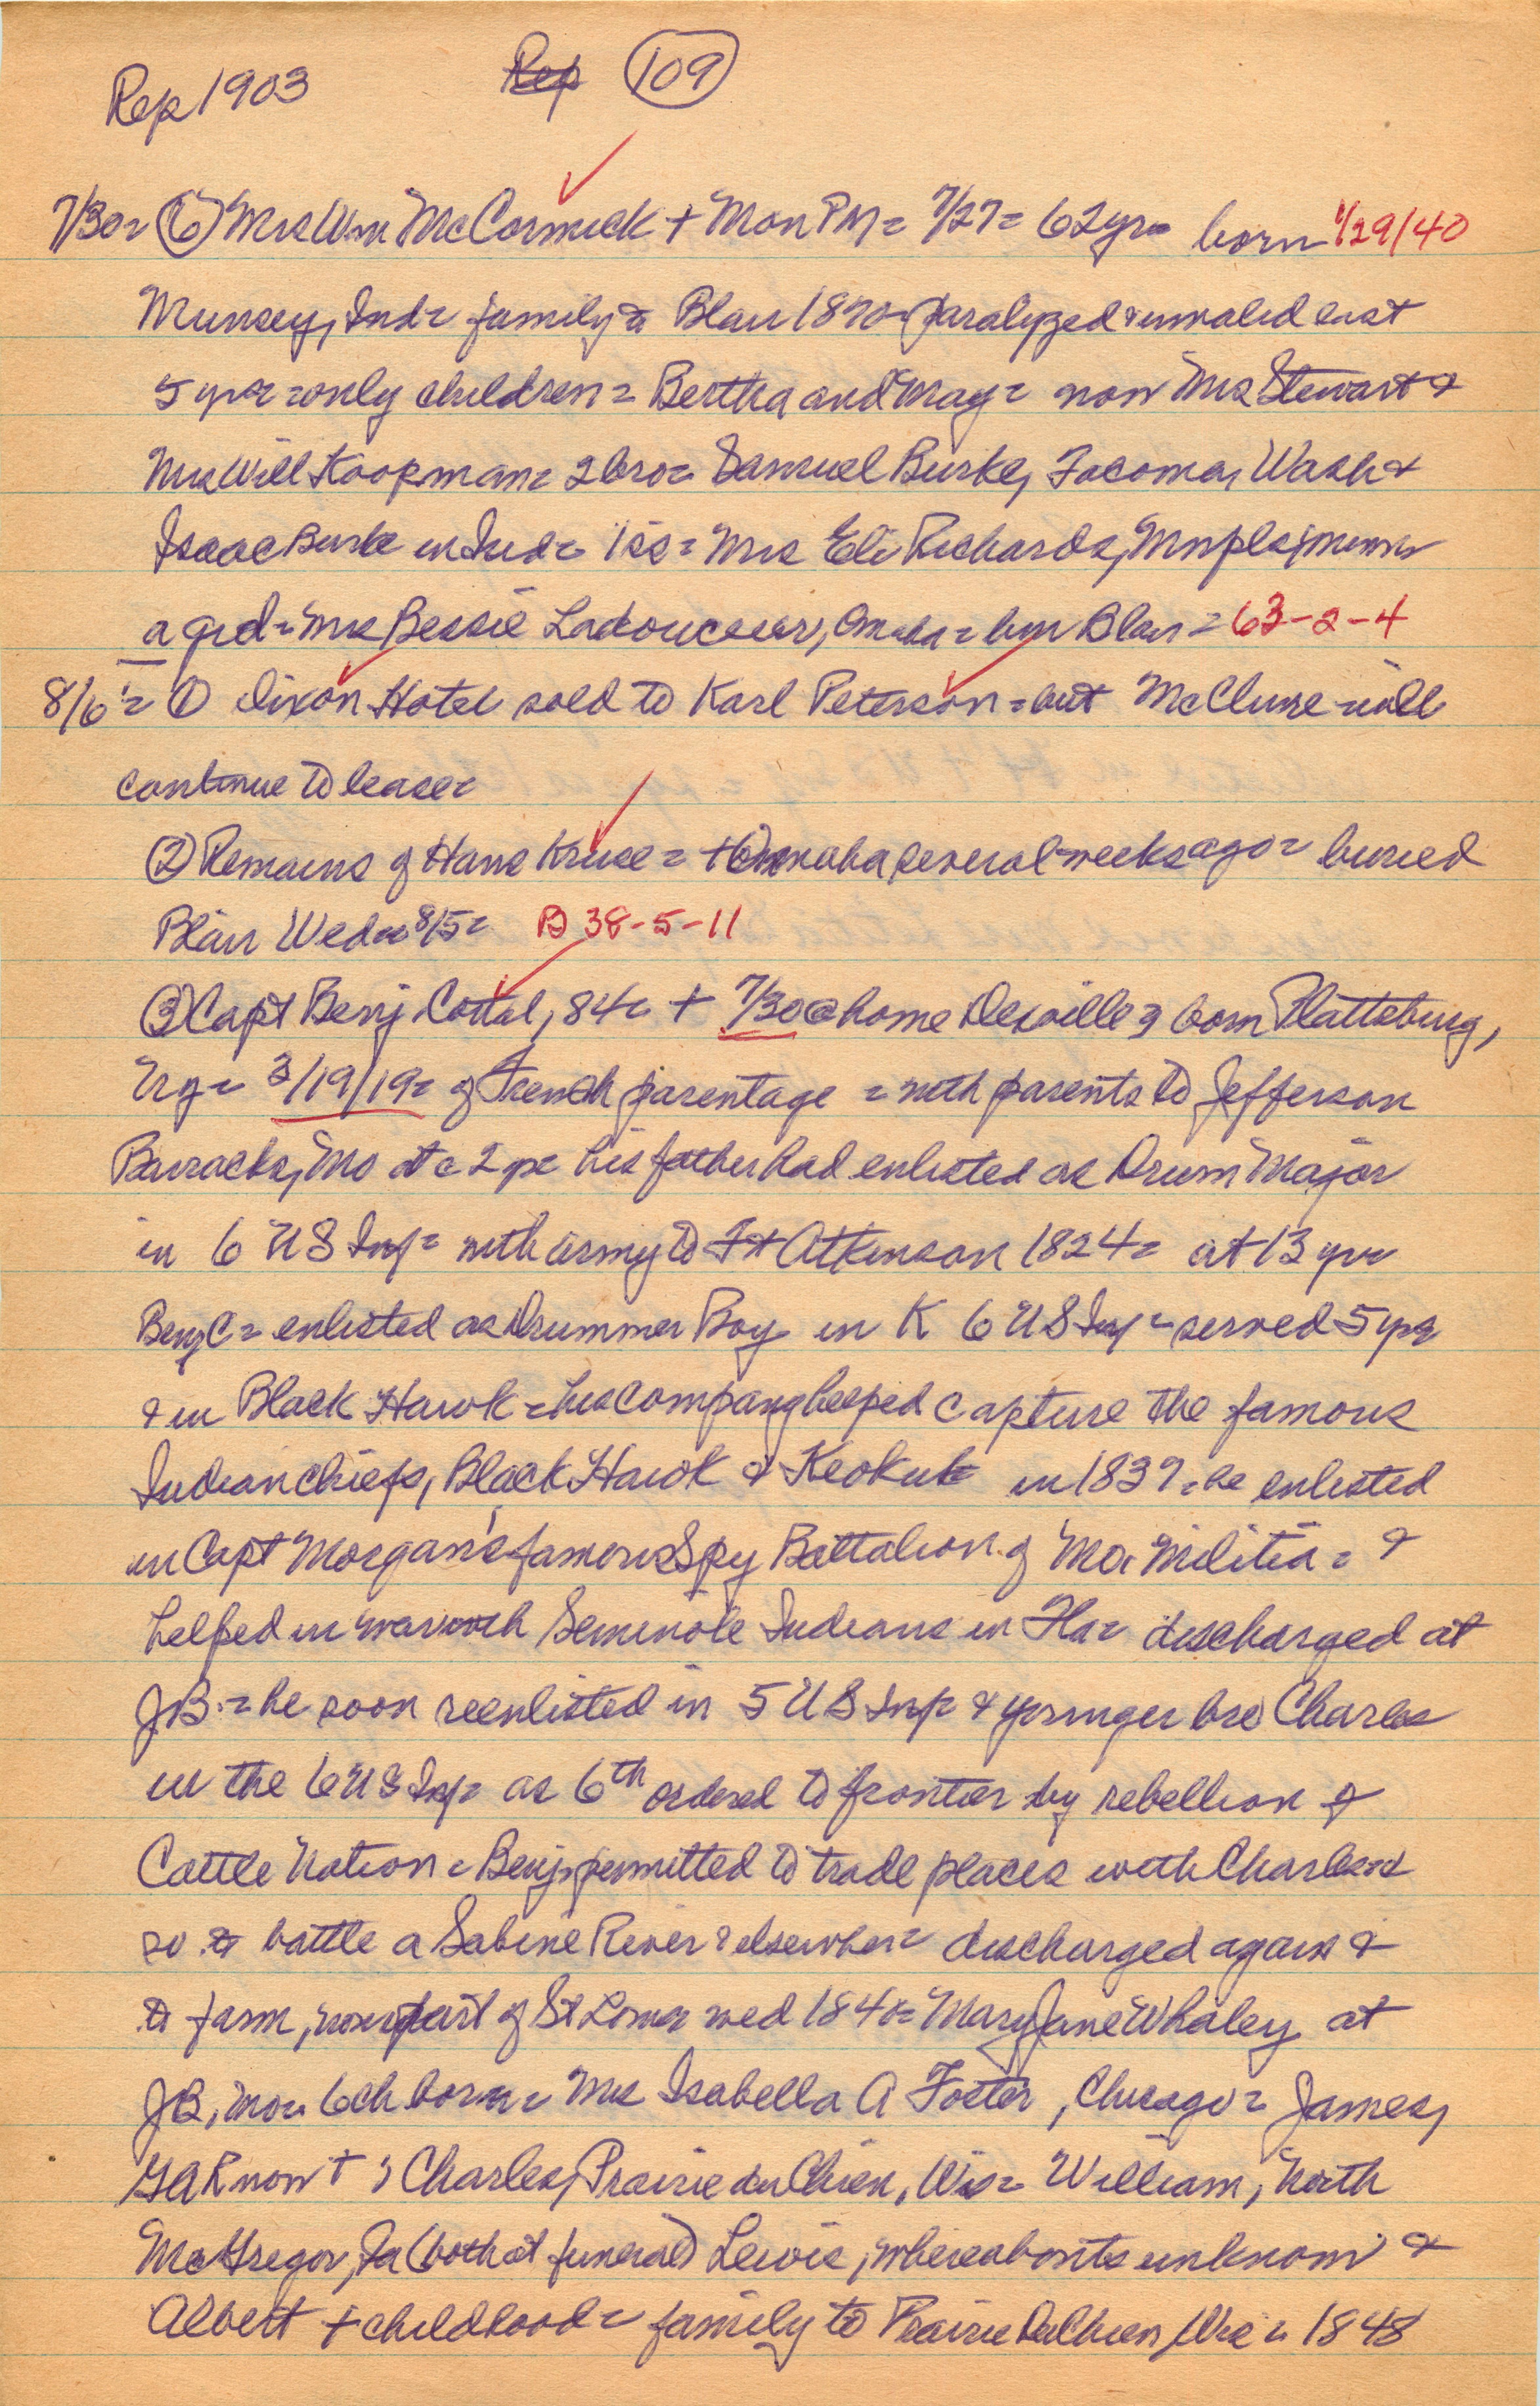 Rep 1903 Rep (109)
7/30= (6) Mrs Wm McCormick + Mon PM= 7/27= 62yr= born 1/29/40
Muncey, Ind= family to Blair 1870= paralyzed & invalid last
5 yrs =only children= Bertha and May= now Mrs Stewart &
Mrs Will Koopman= 2 bro= Samuel Burke, Tacoma, Wash &
Isaac Burke in Ind= 1 sis= Mrs Eli Richards, Mnpls, Minn
a grd= Mrs Bessie Ladouceur, Omaha= bur Blair = 63-2-4
8/6= (1) Dixon Hotel sold to Karl Peterson= but McClure will
continue to lease=
(2) Remains of Hans Kruse= + Omaha several weeks ago= buried
Blair Wed= 8/5= B 38-5-11
(3) Capt Benj Cottal, 84= + 7/30 @ home Desoille= born Plattsburg,
3/19/19= of French parentage = with parents to Jefferson
Barracks, Mo at 2 yr= his father had enlisted as Drum Major
in 6 US Inf= with army to Ft Atkinson 1824= at 13 yrs
Benj C= enlisted as Drummer Boy in K 6 US Inf= served 5 yrs
& in Black Hawk= his company helped capture the famous
Indian chiefs, Black Hawk & Keokuk in 1837= he enlisted
in Capt Morgan's famous Spy Battalion of Mo Militia= &
helped in war with Seminole Indians in Fla= discharged at
JB= he soon reenlisted in 5 US Inf & younger bro Charles
in the 6 US Inf= as 6th ordered to frontier by rebellion of
Cattle Nation= Benj permitted to trade places with Charles &
so to battle a Sabine River & elsewhere= discharged again &
to farm, now part of St Louis wed 1840= Mary Jane Whaley at
JB, Mo= 6 ch born= Mrs Isabella A Foster, Chicago= James,
GAR now + Charles, Prairie du Chien, Wis= William, North
McGregor, Ia (both at funeral) Lewis, whereabouts unknown &
Albert + childhood= family to Prairie DuChien, Wis= 1848